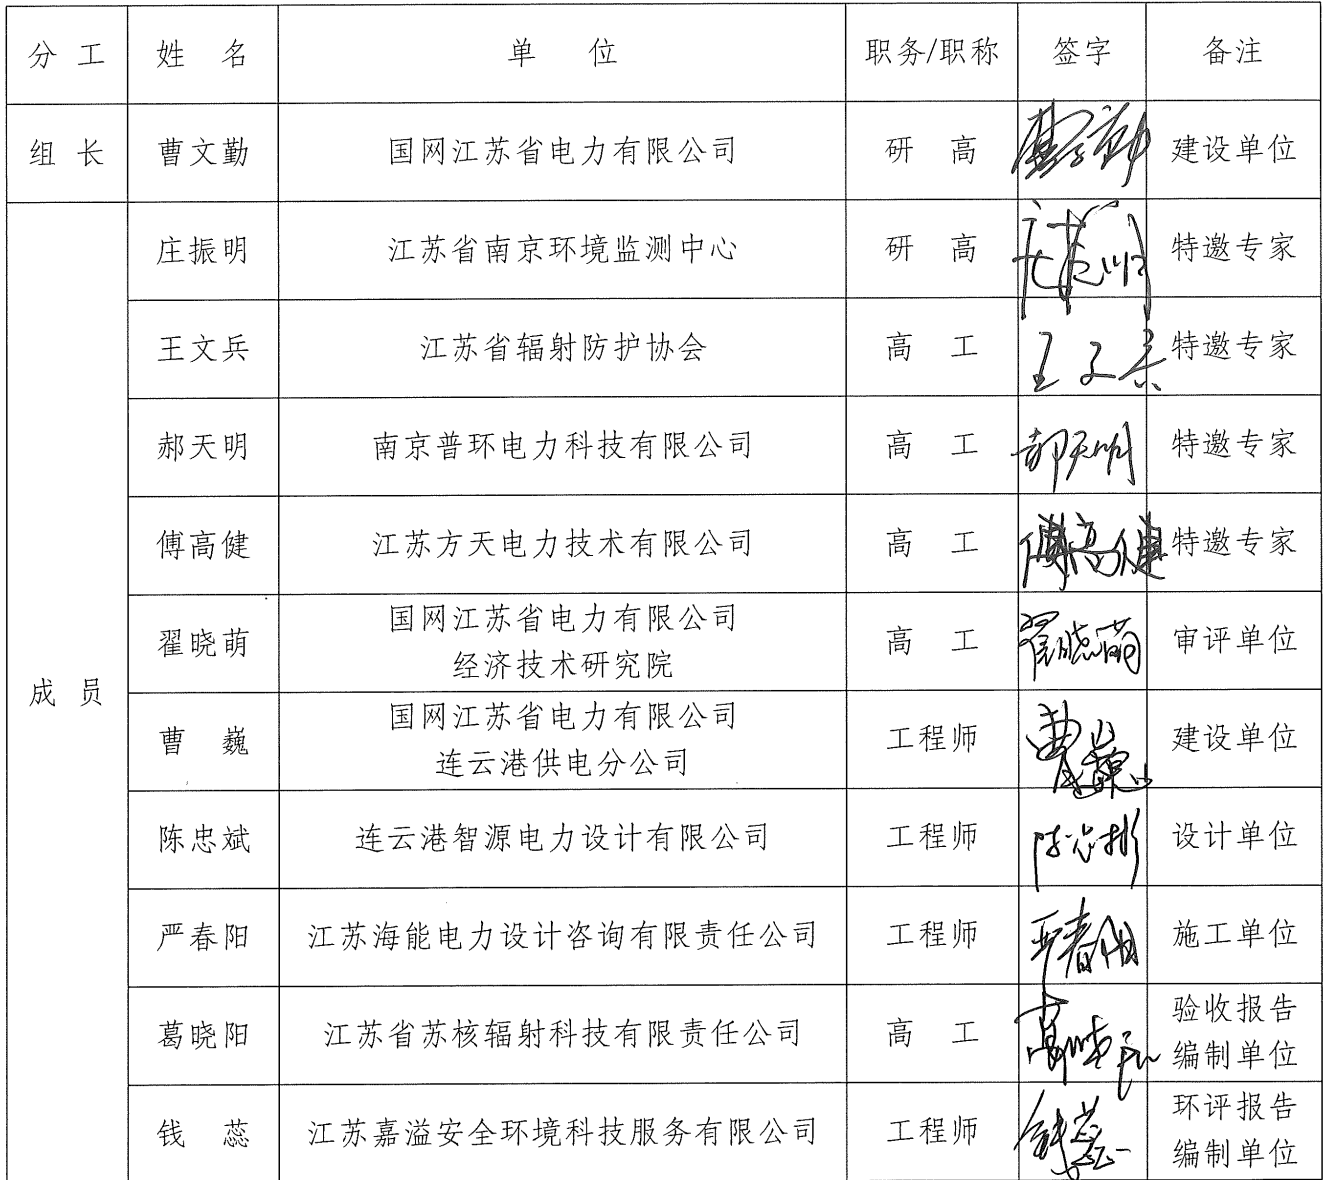 分 工 姓 名 单 位 职务/职称 签字 备注
组 长 曹文勤 国网江苏省电力有限公司 研 高 曹文勤 建设单位
成 员
庄振明 江苏省南京环境监测中心 研 高 庄振明 特邀专家
王文兵 江苏省辐射防护协会 高 工 王文兵 特邀专家
郝天明 南京普环电力科技有限公司 高 工 郝天明 特邀专家
傅高健 江苏方天电力技术有限公司 高 工 傅高健 特邀专家
翟晓萌 国网江苏省电力有限公司
经济技术研究院 高 工 翟晓萌 审评单位
曹 巍 国网江苏省电力有限公司
连云港供电分公司 工程师 曹巍 建设单位
陈忠斌 连云港智源电力设计有限公司 工程师 陈忠彬 设计单位
严春阳 江苏海能电力设计咨询有限责任公司 工程师 严春阳 施工单位
葛晓阳 江苏省苏核辐射科技有限责任公司 高 工 葛晓阳 验收报告
编制单位
钱 蕊 江苏嘉溢安全环境科技服务有限公司 工程师 钱蕊 环评报告
编制单位